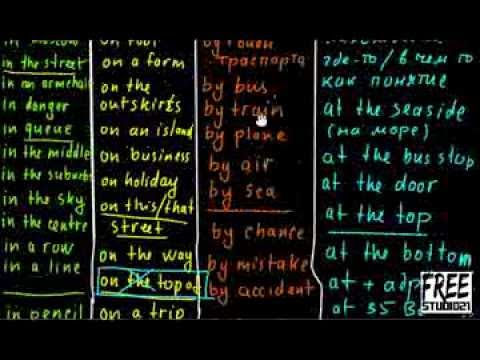 in the street
in an armchair
in danger
in queue
in the middle
in the suburbs
in the sky
in the centre
in a row
in a line
in pencil
on foot
on a farm
on the
outskirts
on an island
on business
on holiday
on this/that
street
on the way
on the top of
on a trip
транспорта
by bus
by train
by plane
by air
by sea
by chance
by mistake
by accident
где-то/в чем то
как понятие
at the seaside
(на море)
at the bus stop
at the door
at the top
at the bottom
at +
at 35
FREE
STUDIO21